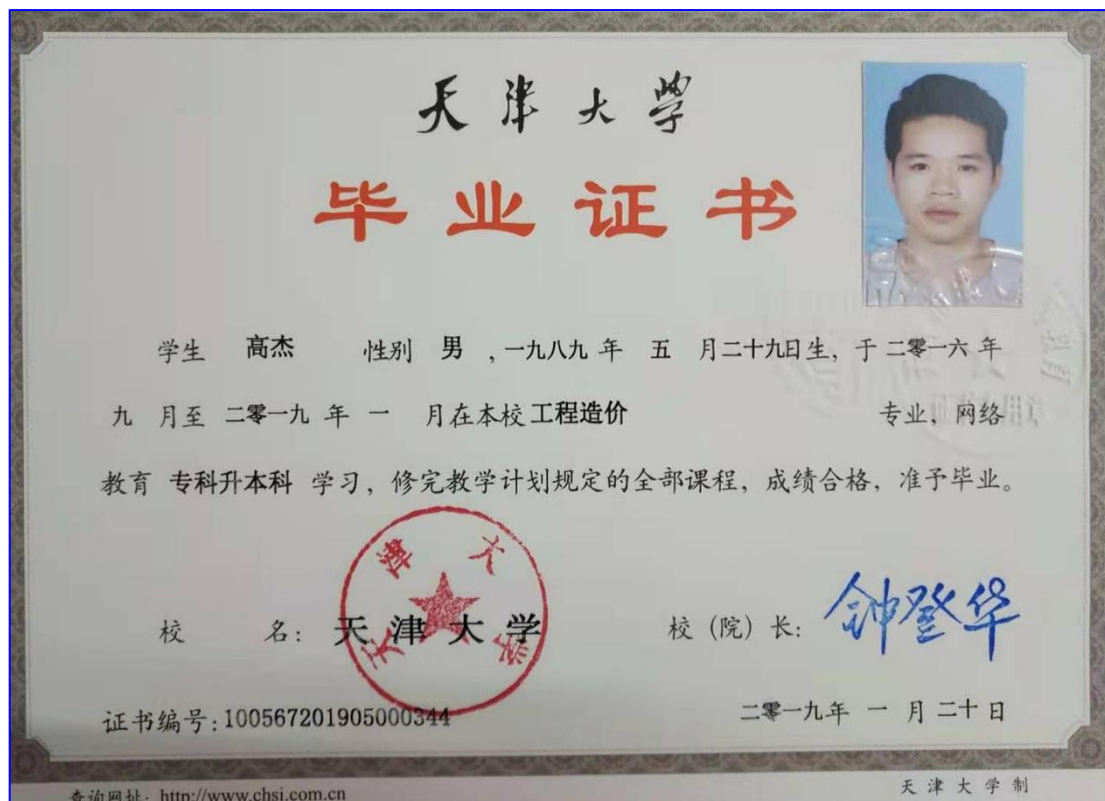 天津大學
毕业证书
学生 高杰 性别 男 ，一九八九 年 五 月二十九日生，于 二零一六 年
九 月至 二零一九 年 一 月在本校 工程造价 专业，网络
教育 专科升本科 学习，修完教学计划规定的全部课程，成绩合格，准予毕业。
天津大学
校 名：天津大学 校（院）长：钟登华
证书编号：100567201905000344 二零一九年 一 月 二十 日
查询网址：http://www.chsi.com.cn 天津大学制